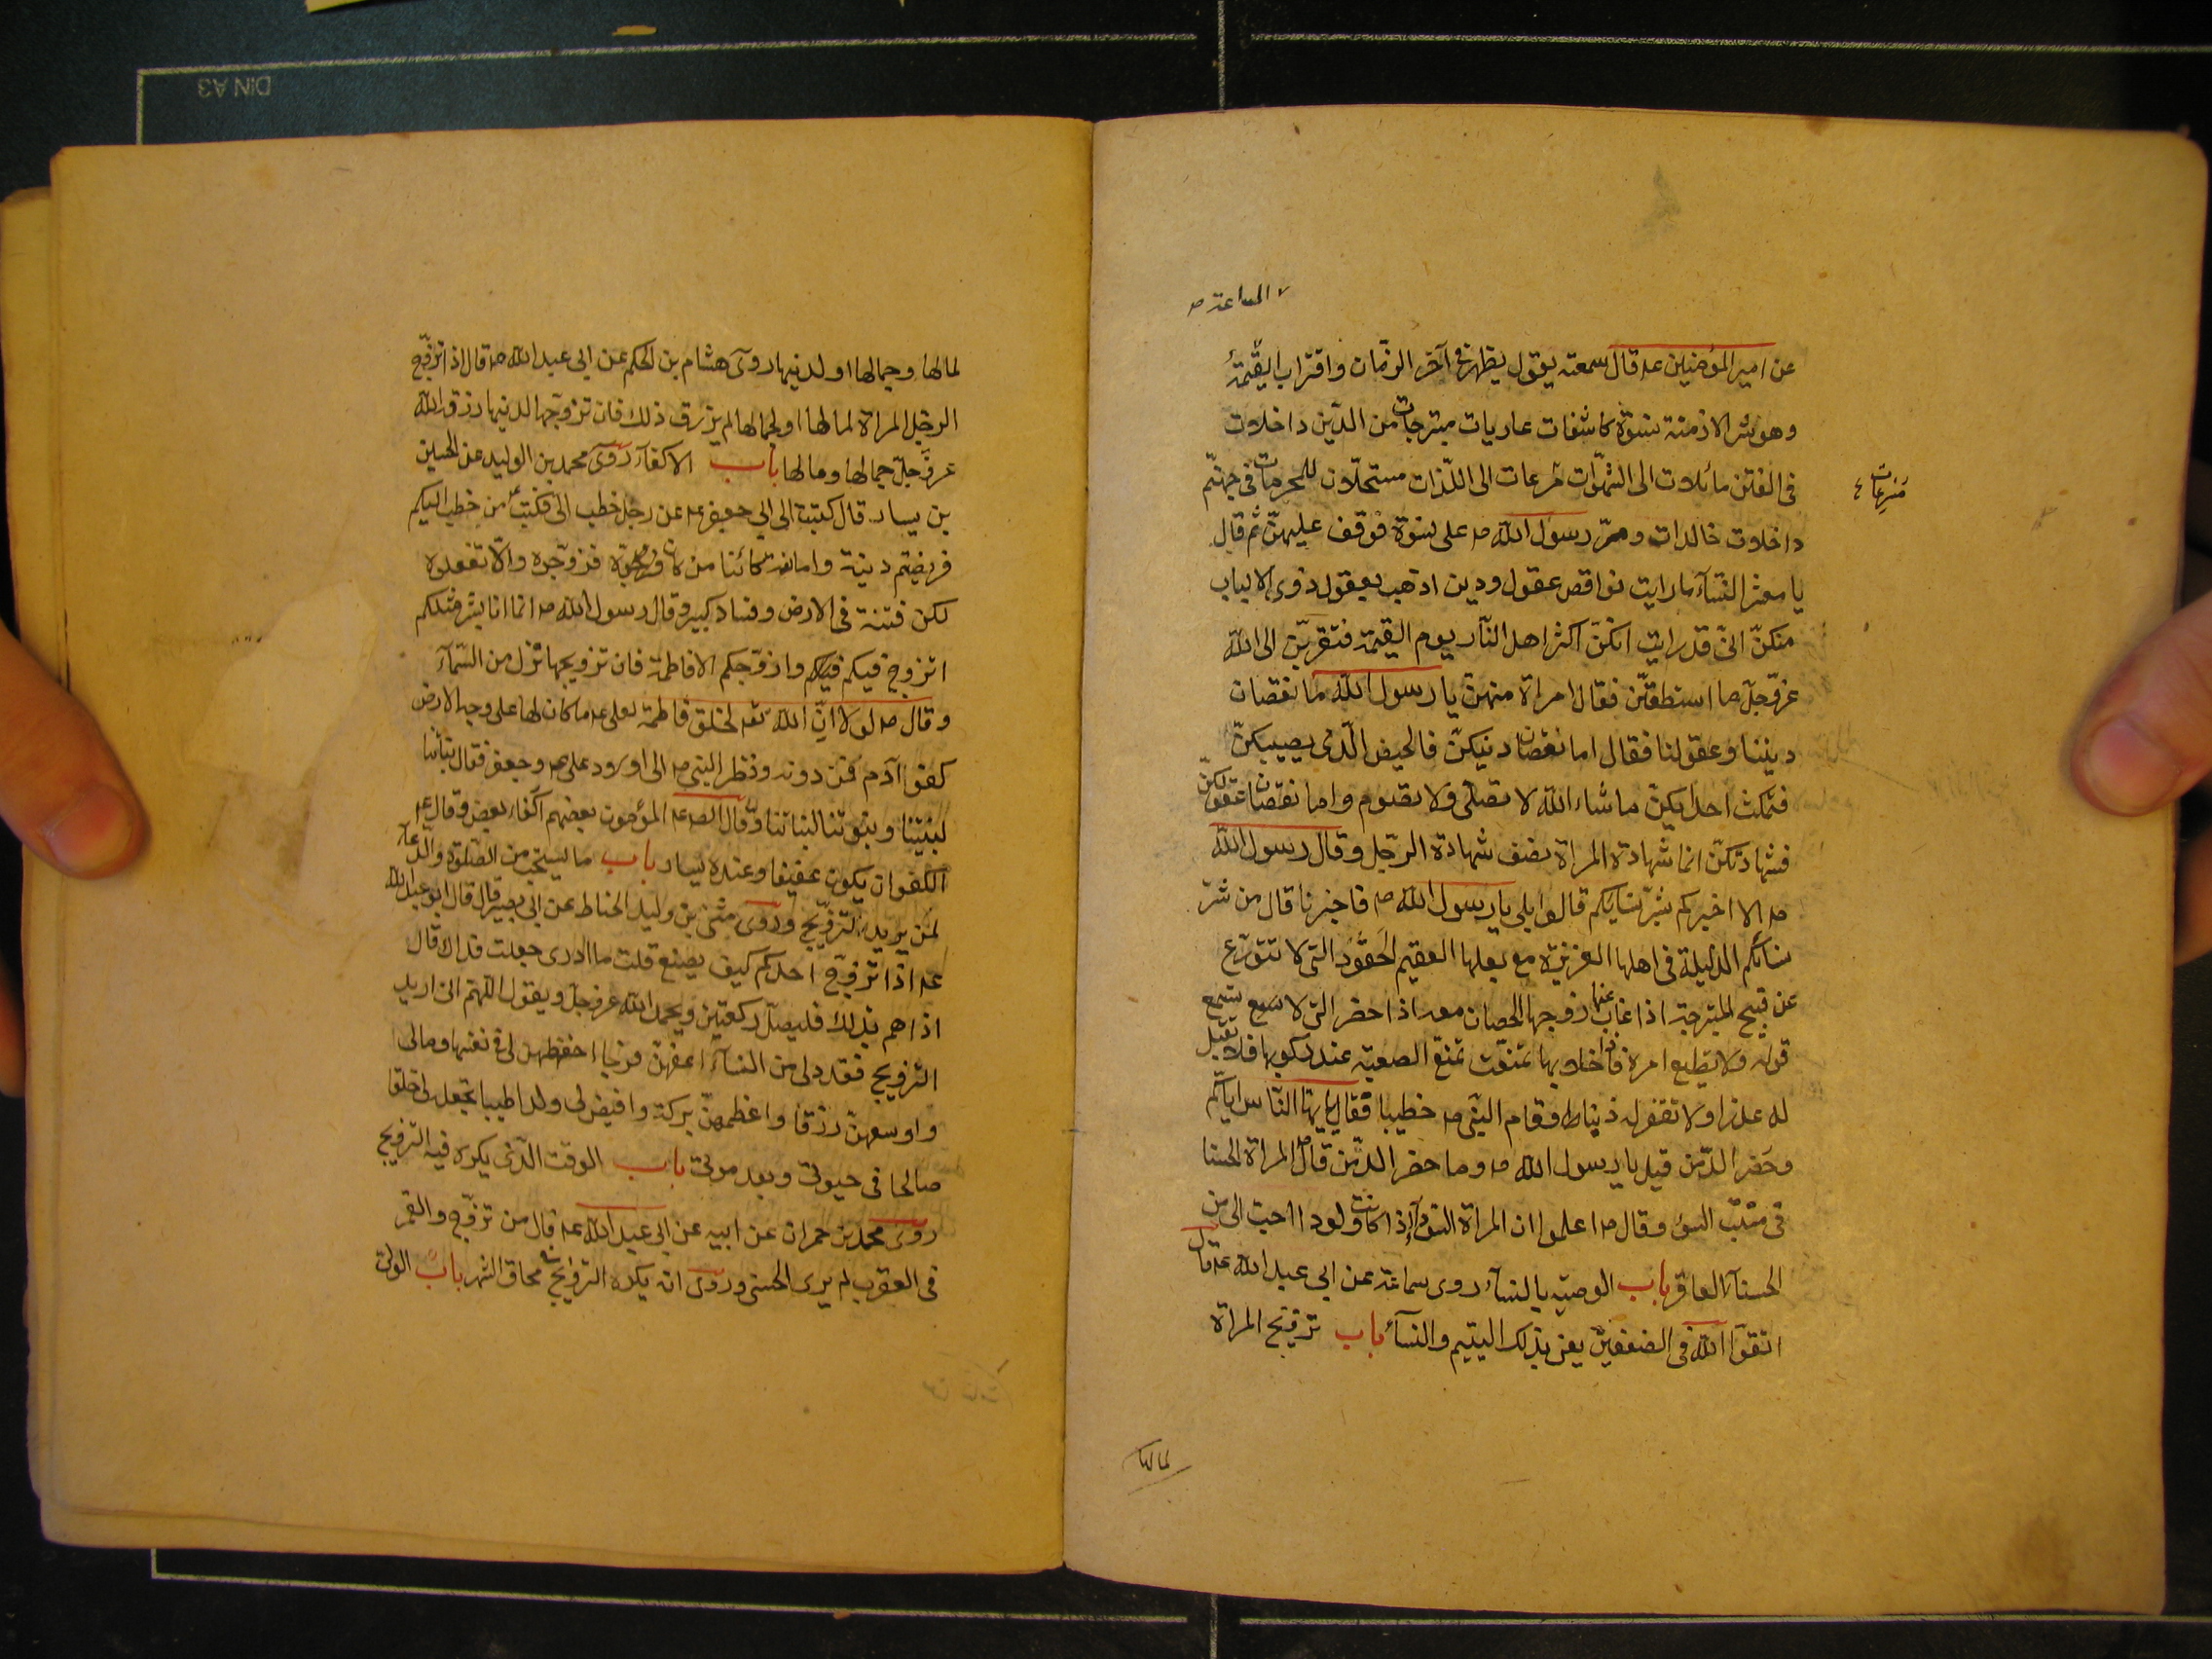 الساعة ص
عن امير المؤمنين عه قال سمعته يقول يظهر فى آخر الزمان واقتراب القيمة
وهو شر الازمنة نسوة كاشفات عاريات متبرجات من الدين داخلات
فى الفتن مائلات الى الشهوات مسرعات الى اللذات مستحلات للمحرمات فى جهنم
مسرعات
داخلات خالدات ومر رسول الله ص على نسوة فوقف عليهن ثم قال
يا معشر النساء ما رايت نواقص عقول ودين اذهب بعقول ذوى الالباب
منكن انى قد رايت انكن اكثر اهل النار يوم القيمة فتقربن الى الله
عز وجل ما استطعتن فقال امراة منهن يا رسول الله ما نقصان
ديننا وعقولنا فقال اما نقصان دينكن فالحيض الذى يصيبكن
فتمكث احديكن ما شاء الله لا تصلى ولا تصوم واما نقصان عقولكن
فشهادتكن انما شهادة المراة نصف شهادة الرجل وقال رسول الله
ص الا اخبركم بشر نسائكم قالوا بلى يا رسول الله ص فاخبرنا قال من شر
نسائكم الذليلة فى اهلها العزيزة مع بعلها العقيم الحقود التى لا تتورع
عن قبيح المتبرجة اذا غاب عنها زوجها الحصان معه اذا حضر التى لا تسمع
قوله ولا تطيع امره فاذا خلا بها تمنعت تمنع الصعبة عند ركوبها فلا تقبل
له عذرا ولا تغفر له ذنبا وقام النبى ص خطيبا فقال ايها الناس اياكم
وخضر الدمن قيل يا رسول الله ص وما خضر الدمن قال المراة الحسنا
فى منبت السوء وقال ص اعلموا ان المراة السوداء اذا كانت ولودا احب الى من
الحسناء العاقر باب الوصية بالنساء روى سماعة عن ابى عبد الله عه قال
اتقوا الله فى الضعيفين يعنى بذلك اليتيم والنساء باب تزويج المراة
لمالها
لمالها وجمالها او لدينها روى هشام بن الحكم عن ابى عبد الله ص قال اذا تزوج
الرجل المراة لمالها او لجمالها لم يرزق ذلك فان تزوجها لدينها رزقه الله
عز وجل جمالها ومالها باب الاكفاء روى محمد بن الوليد عن الحسين
بن يسار قال كتبت الى ابى جعفر عه عن رجل خطب الى فكتب من خطب اليكم
فرضيتم دينه وامانته كائنا من كان فزوجوه والا تفعلوه
تكن فتنة فى الارض وفساد كبير وقال رسول الله ص انما انا بشر مثلكم
اتزوج فيكم وازوجكم الا فاطمة فان تزويجها نزل من السماء
وقال ص لولا ان الله تعه لخلق فاطمة لعلى عه ما كان لها على وجه الارض
كفو آدم فمن دونه ونظر النبى ص الى اولاد على عه وجعفر فقال بناتنا
لبنينا وبنونا لبناتنا وقال الصه عه المؤمنون بعضهم اكفاء بعض وقال عه
الكفو ان يكون عفيفا وعنده يسار باب ما يستحب من الصلوة والدعاء
لمن يريد التزويج وروى مثنى بن وليد الحناط عن ابى بصير قال قال ابو عبد الله
عه اذا تزوج احدكم كيف يصنع قلت ما ادرى جعلت فداك قال
اذا هم بذلك فليصل ركعتين ويحمد الله عز وجل ويقول اللهم انى اريد
التزويج فقدر لى من النساء اعفهن فرجا احفظهن لى فى نفسها ومالى
واوسعهن رزقا واعظمهن بركة واقيض لى ولدا طيبا تجعله لى خلفا
صالحا فى حيوتى وبعد موتى باب الوقت الذى يكره فيه التزويج
روى محمد بن حمران عن ابيه عن ابى عبد الله عه قال من تزوج والقمر
فى العقرب لم يرى الحسنى وروى انه يكره التزويج فى محاق الشهر باب الولى